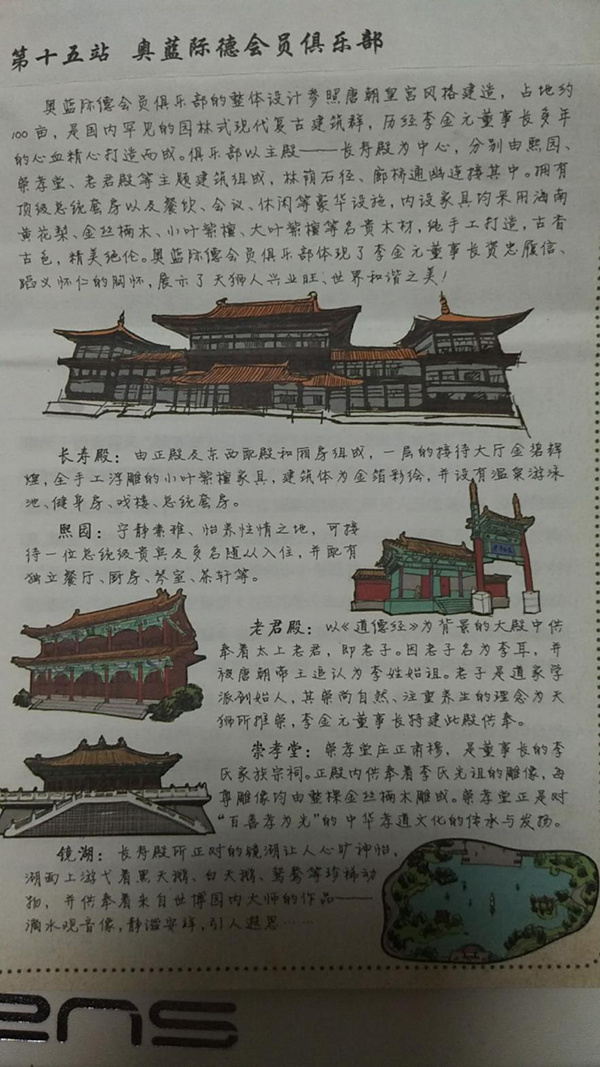 第十五站 奥蓝际德会员俱乐部
奥蓝际德会员俱乐部的整体设计参照唐朝皇宫风格建造，占地约
100亩，是国内罕见的园林式现代复古建筑群，历经李金元董事长多年
的心血精心打造而成。俱乐部以主殿——长寿殿为中心，分别由熙园、
崇孝堂、老君殿等主题建筑组成，林荫石径、廊桥通幽连接其中。拥有
顶级总统套房以及餐饮、会议、休闲等豪华设施，内设家具均采用海南
黄花梨、金丝楠木、小叶紫檀、大叶紫檀等名贵木材，纯手工打造，古香
古色，精美绝伦。奥蓝际德会员俱乐部体现了李金元董事长资忠履信、
蹈义怀仁的胸怀，展示了天狮人兴业旺、世界和谐之美！
长寿殿：由正殿及东西配殿和厢房组成，一层的接待大厅金碧辉
煌，全手工浮雕的小叶紫檀家具，建筑体为金箔彩绘，并设有温泉游泳
池、健身房、戏楼、总统套房。
熙园：宁静素雅、怡养性情之地，可接
待一位总统级贵宾及多名随从入住，并配有
独立餐厅、厨房、琴室、茶轩等。
老君殿：以《道德经》为背景的大殿中供
奉着太上老君，即老子。因老子名为李耳，并
被唐朝帝王追认为李姓始祖。老子是道家学
派创始人，其崇尚自然、注重养生的理念为天
狮所推崇，李金元董事长特建此殿供奉。
崇孝堂：崇孝堂庄正肃穆，是董事长的李
氏家族宗祠。正殿内供奉着李氏先祖的雕像，每
尊雕像均由整棵金丝楠木雕成。崇孝堂正是对
“百善孝为先”的中华孝道文化的传承与发扬。
镜湖：长寿殿所正对的镜湖让人心旷神怡，
湖面上游弋着黑天鹅、白天鹅、鸳鸯等珍稀动
物，并供奉着来自世博园内大师的作品——
滴水观音像，静谧安祥，引人遐思……